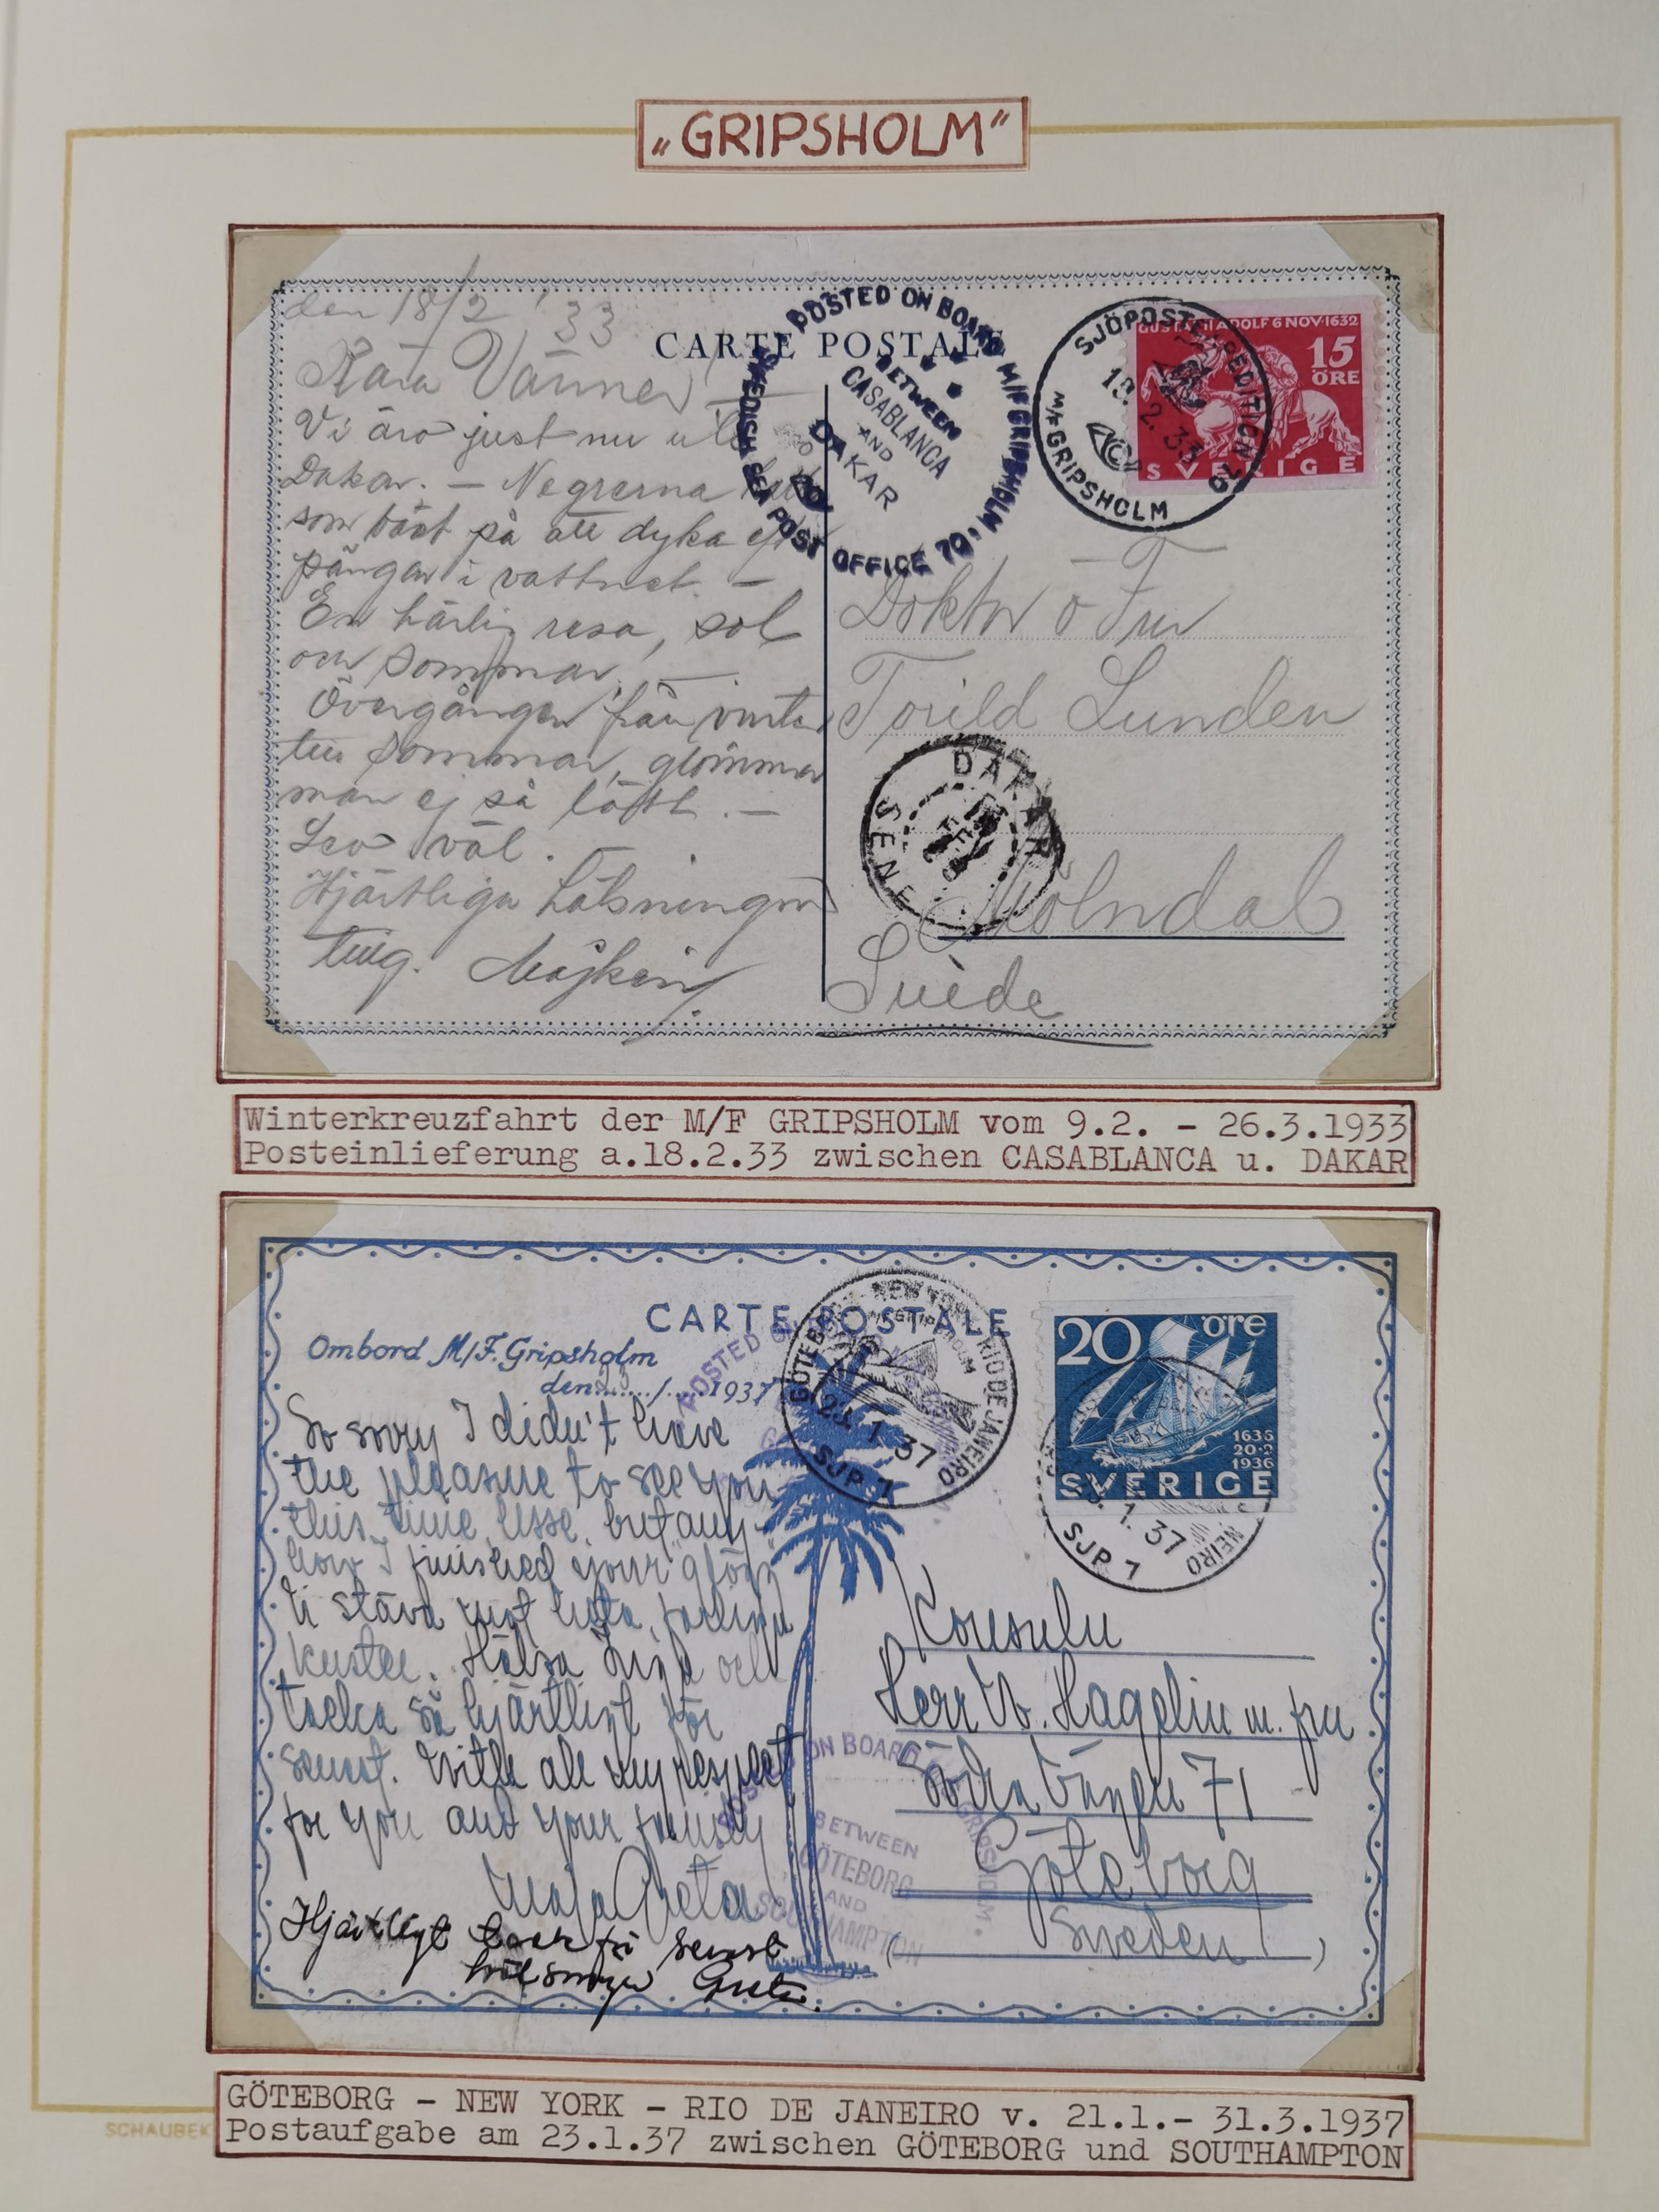 „GRIPSHOLM“
den 18/2 '33
Kära Vänner
Vi äro just nu
Dakar. — Negrerna
som bäst på att dyka
pängar i vattnet. —
En härlig resa, sol
och sommar. —
Övergången från
till sommar, glömmer
man ej så lätt. —
Lev väl. —
Hjärtliga hälsningar
Majken
CARTE POSTALE
POSTED ON BOARD M/F GRIPSHOLM
SWEDISH SEA POST OFFICE
BETWEEN
CASABLANCA
AND
DAKAR
SJÖPOSTEXPEDITION
18.2.33
M/F GRIPSHOLM
GUSTAF II ADOLF 6 NOV·1632
15
ÖRE
SVERIGE
Doktor o Fru
Torild Lunden
DAKAR
Mölndal
Suède
Winterkreuzfahrt der M/F GRIPSHOLM vom 9.2. - 26.3.1933
Posteinlieferung a.18.2.33 zwischen CASABLANCA u. DAKAR
CARTE POSTALE
Ombord M/F. Gripsholm
den 23/ 1937
So sorry I didn't have
the pleasure to see you
this time, Lisse, but any-
how I finished your "glögg"
kusten. Hälsa och
tacka så hjärtligt för
senast. With all my respect
for you and your family
Maja Greta
Hjärtligt tack för senast
hälsningar Greta.
GÖTEBORG NEW YORK RIO DE JANEIRO
M/S GRIPSHOLM
23.1.37
SJP. 7
20 öre
1636
20·2
1936
SVERIGE
1.37
SJP. 7
NEIRO
Konsuln
Herr W. Hagelin m. fru
Södra Vägen 71
Göteborg
Sweden
POSTED ON BOARD M/S GRIPSHOLM
BETWEEN
GÖTEBORG
AND
SOUTHAMPTON
GÖTEBORG - NEW YORK - RIO DE JANEIRO v. 21.1.- 31.3.1937
Postaufgabe am 23.1.37 zwischen GÖTEBORG und SOUTHAMPTON
SCHAUBEK